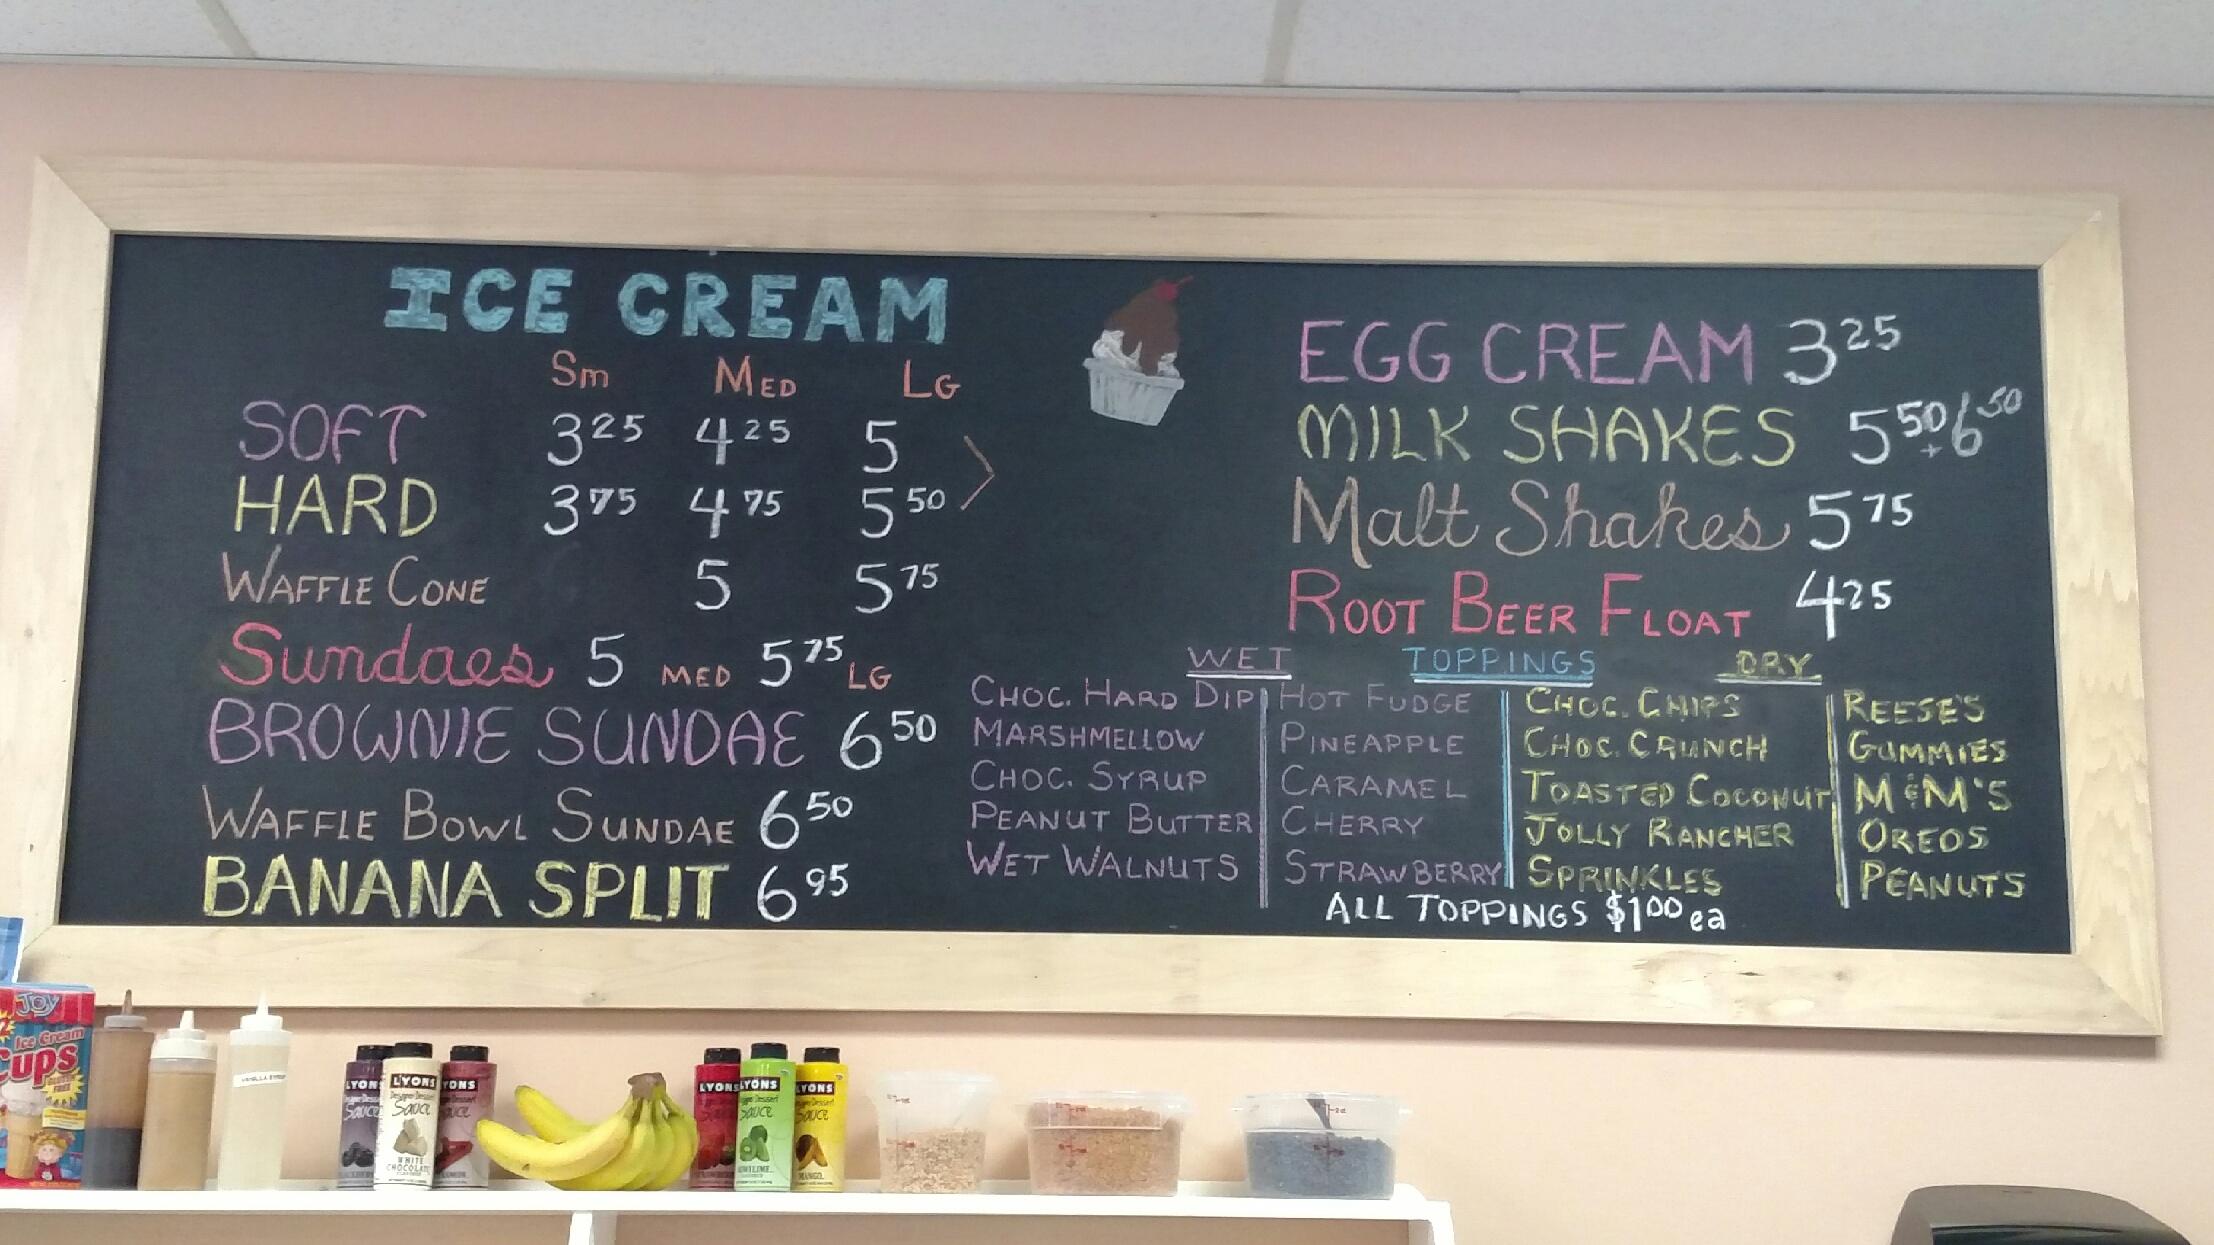 ICE CREAM
Sm MED LG
SOFT 3.25 4.25 5
HARD 3.75 4.75 5.50
WAFFLE CONE 5 5.75
Sundaes 5 MED 5.75 LG
BROWNIE SUNDAE 6.50
WAFFLE BOWL SUNDAE 6.50
BANANA SPLIT 6.95
EGG CREAM 3.25
MILK SHAKES 5.50 + 6.50
Malt Shakes 5.75
ROOT BEER FLOAT 4.25
WET TOPPINGS DRY
CHOC. HARD DIP
MARSHMELLOW
CHOC. SYRUP
PEANUT BUTTER
WET WALNUTS
HOT FUDGE
PINEAPPLE
CARAMEL
CHERRY
STRAWBERRY
CHOC. CHIPS
CHOC. CRUNCH
TOASTED COCONUT
JOLLY RANCHER
SPRINKLES
REESE'S
GUMMIES
M&M'S
OREOS
PEANUTS
ALL TOPPINGS $1.00 ea
JOY
Ice Cream
Cups
LYONS
Sauce
LYONS
Designer Dessert
Sauce
WHITE
CHOCOLATE
LYONS
Sauce
LYONS
Sauce
LYONS
Sauce
LYONS
Sauce
MANGO